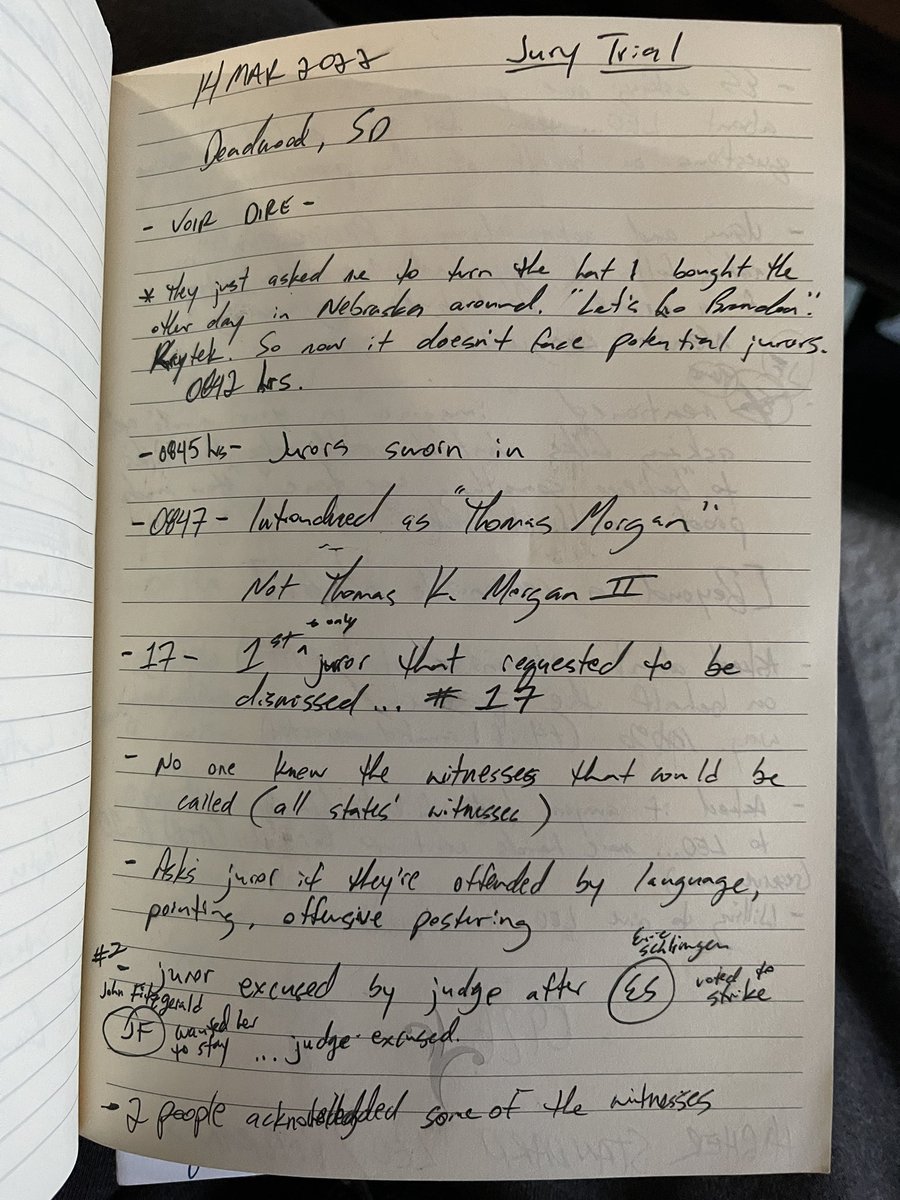 14 MAR 2022 Jury Trial
Deadwood, SD
- VOIR DIRE -
* they just asked me to turn the hat I bought the
other day in Nebraska around. "Let's Go Brandon".
So now it doesn't face potential jurors.
0842 hrs.
- 0845 hrs - Jurors sworn in
- 0847 - Introduced as "Thomas Morgan"
Not Thomas K. Morgan II
+ only
- 17 - 1st ^ juror that requested to be
dismissed... # 17
- No one knew the witnesses that would be
called (all states' witnesses)
- Asks juror if they're offended by language,
pointing, offensive posturing
#2 - juror excused by judge after ES voted to strike
schlimgen
John Fitzgerald
JF wanted her to stay ... judge excused.
- 2 people acknowledged some of the witnesses